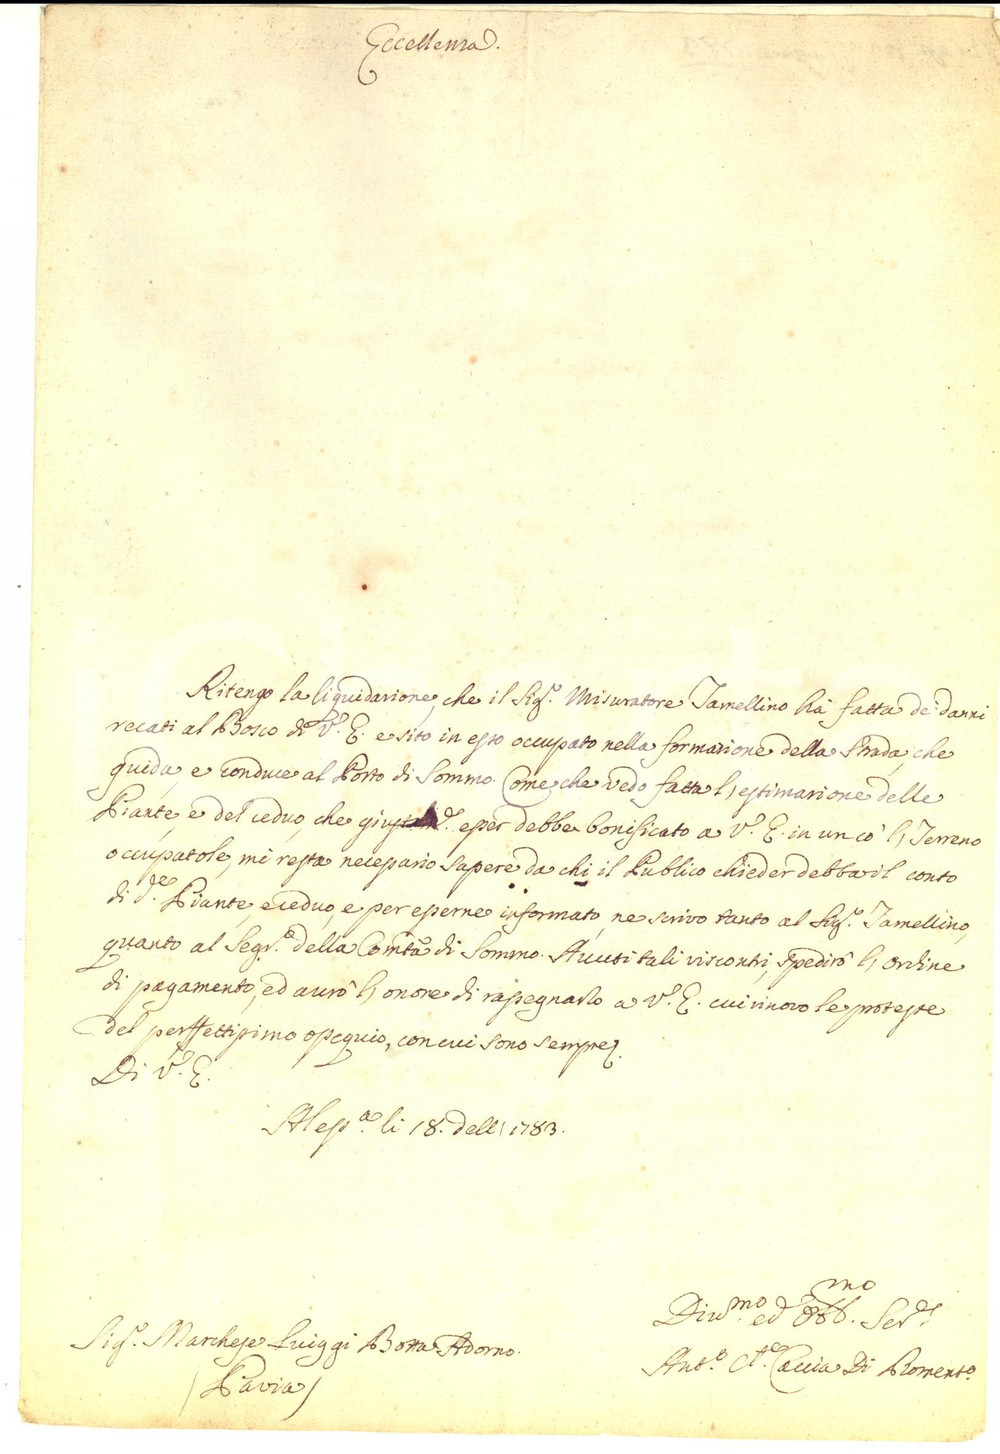 Eccellenza.
Ritengo la liquidazione, che il Sig.r Misuratore Jamellino hà fatta de' danni
recati al Bosco di V.a E. e sito in esso occupato nella formazione della Strada, che
guida, e conduce al Porto di Sommo. Come che vedo fatta l'estimazione delle
Piante, e del ceduo, che esser debbe bonificato a V.a E. in un co' l' Terreno
occupatole, mi resta necessario sapere da chi il Publico chieder debba il conto
di d.e Piante, e ceduo, e per esserne informato, ne scrivo tanto al Sig.r Jamellino,
quanto al Segr.o della Com.tà di Sommo. Avuti tali riscontri, spedirò l'ordine
di pagamento, ed avrò l'onore di rassegnarlo a V.a E. cui rinovo le proteste
del perffettissimo ossequio, con cui sono sempre
Di V.a E.
Aless.a li 18. dell' 1783.
Div.mo ed Obb.mo Ser.
Sig.r Marchese Luiggi Botta Adorno.
Ant.o C.te Caccia Di Roment.o
(Pavia)